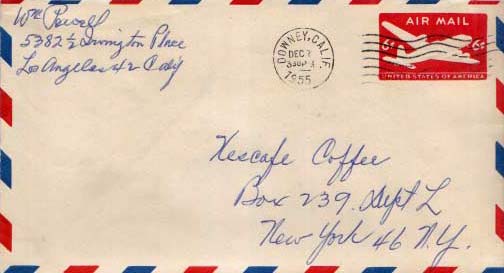 Wm Powell
5382 1/2 Irvington Place
Los Angeles 42 Calif
DOWNEY, CALIF.
DEC 2
330 PM
1955
AIR MAIL
6¢ 6¢
UNITED STATES OF AMERICA
Nescafe Coffee
Box 239, Dept L
New York 46 N.Y.